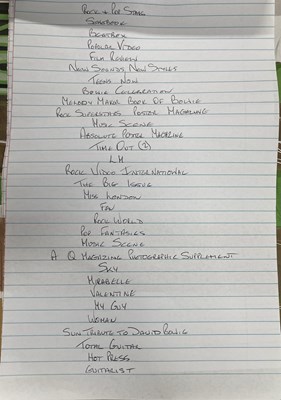 Rock & Pop Star
Songbook
Beatbox
Popular Video
Film Review
New Sounds, New Styles
Teens Now
Bowie Celebration
Melody Maker Book Of Bowie
Rock Superstars Poster Magazine
Music Scene
Absolute Poster Magazine
Time Out (2)
LM
Rock Video International
The Big Issue
Miss London
Fan
Rock World
Pop Fantastics
Music Scene
A Q Magazine Photographic Supplement
Sky
Mirabelle
Valentine
My Guy
Woman
Sun Tribute to David Bowie
Total Guitar
Hot Press
Guitarist